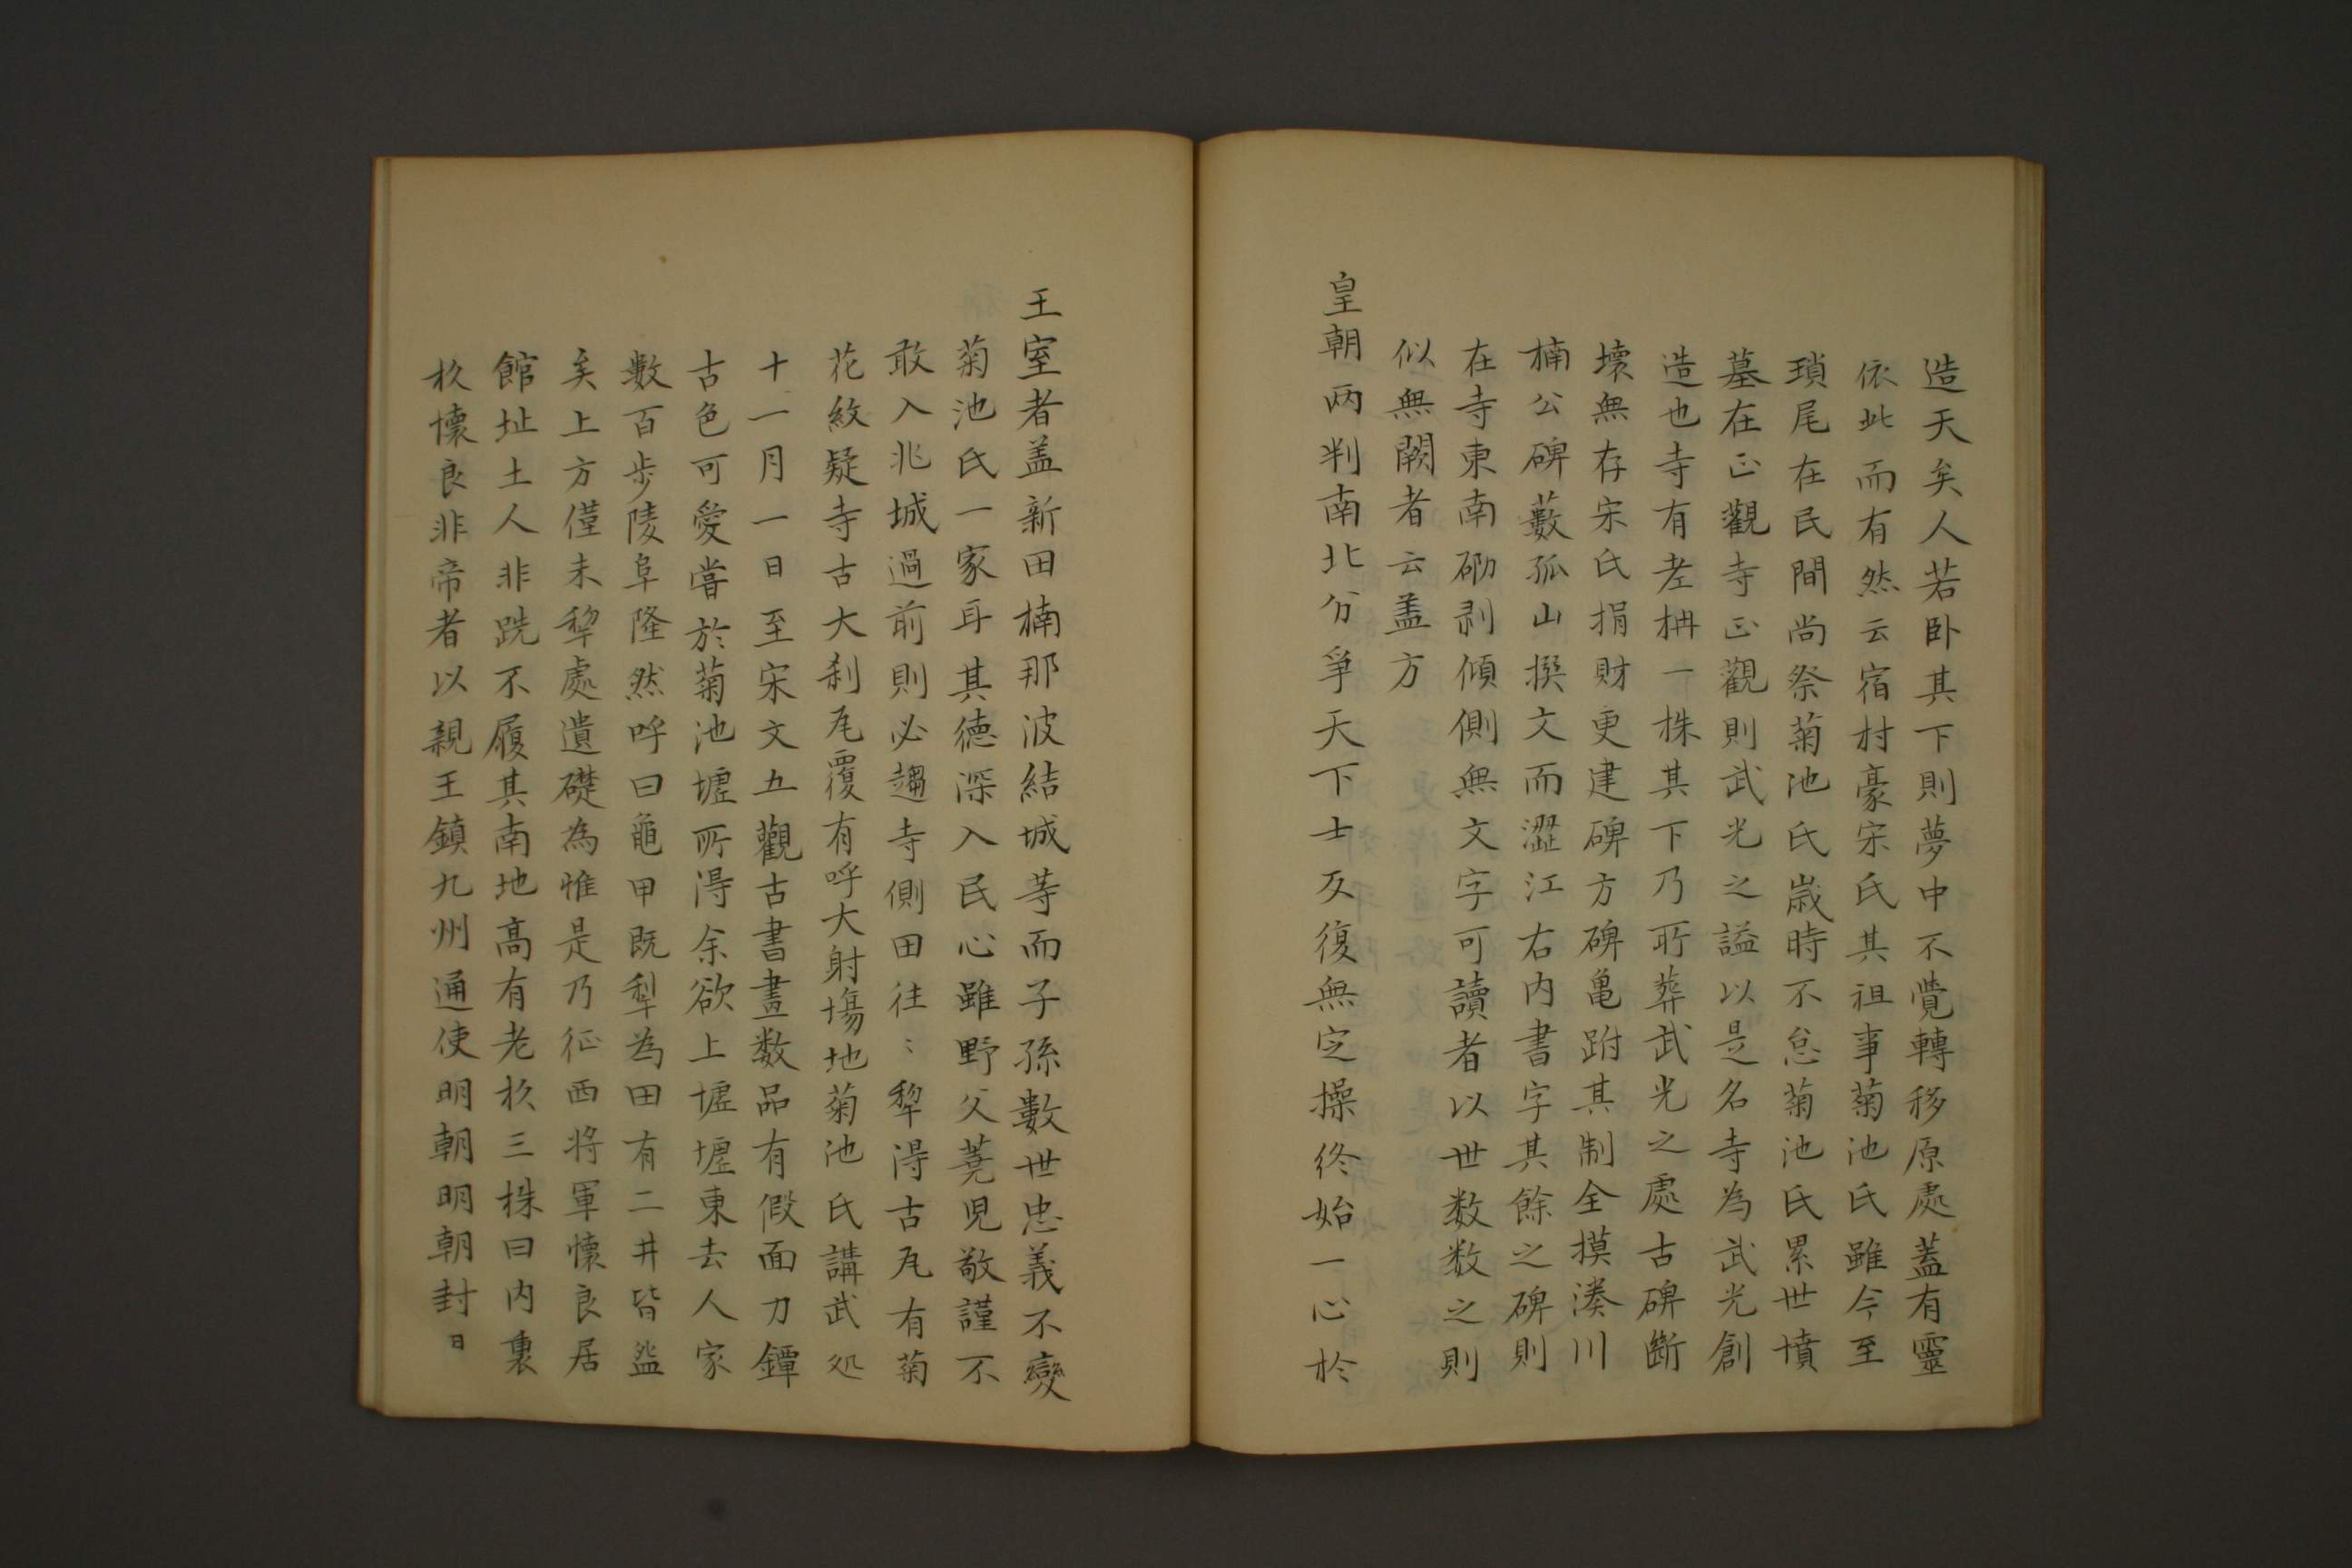 造天矣人若卧其下則夢中不覺轉移原處蓋有靈
依此而有然云宿村豪宋氏其祖事菊池氏雖今至
瑣尾在民間尚祭菊池氏歳時不怠菊池氏累世墳
墓在正觀寺正觀則武光之謚以是名寺為武光創
造也寺有老柟一株其下乃所葬武光之處古碑斷
壊無存宋氏捐財更建碑方碑亀跗其制全摸湊川
楠公碑藪孤山撰文而澀江右内書字其餘之碑則
在寺東南泐剥傾側無文字可讀者以世数数之則
似無闕者云盖方
皇朝兩判南北分爭天下士反復無定操終始一心於
王室者盖新田楠那波結城等而子孫數世忠義不變
菊池氏一家耳其德深入民心雖野父蕘児敬謹不
敢入兆城過前則必趨寺側田往〻犂得古瓦有菊
花紋疑寺古大刹瓦覆有呼大射場地菊池氏講武処
十一月一日至宋文五觀古書畫数品有假面刀鐔
古色可愛嘗於菊池墟所得余欲上墟墟東去人家
數百步陵阜隆然呼曰龜甲既犁為田有二井皆盗
矣上方僅未犂處遺礎為惟是乃征西将軍懷良居
館址土人非跣不履其南地高有老杦三株曰内裏
杦懷良非帝者以親王鎮九州通使明朝明朝封日